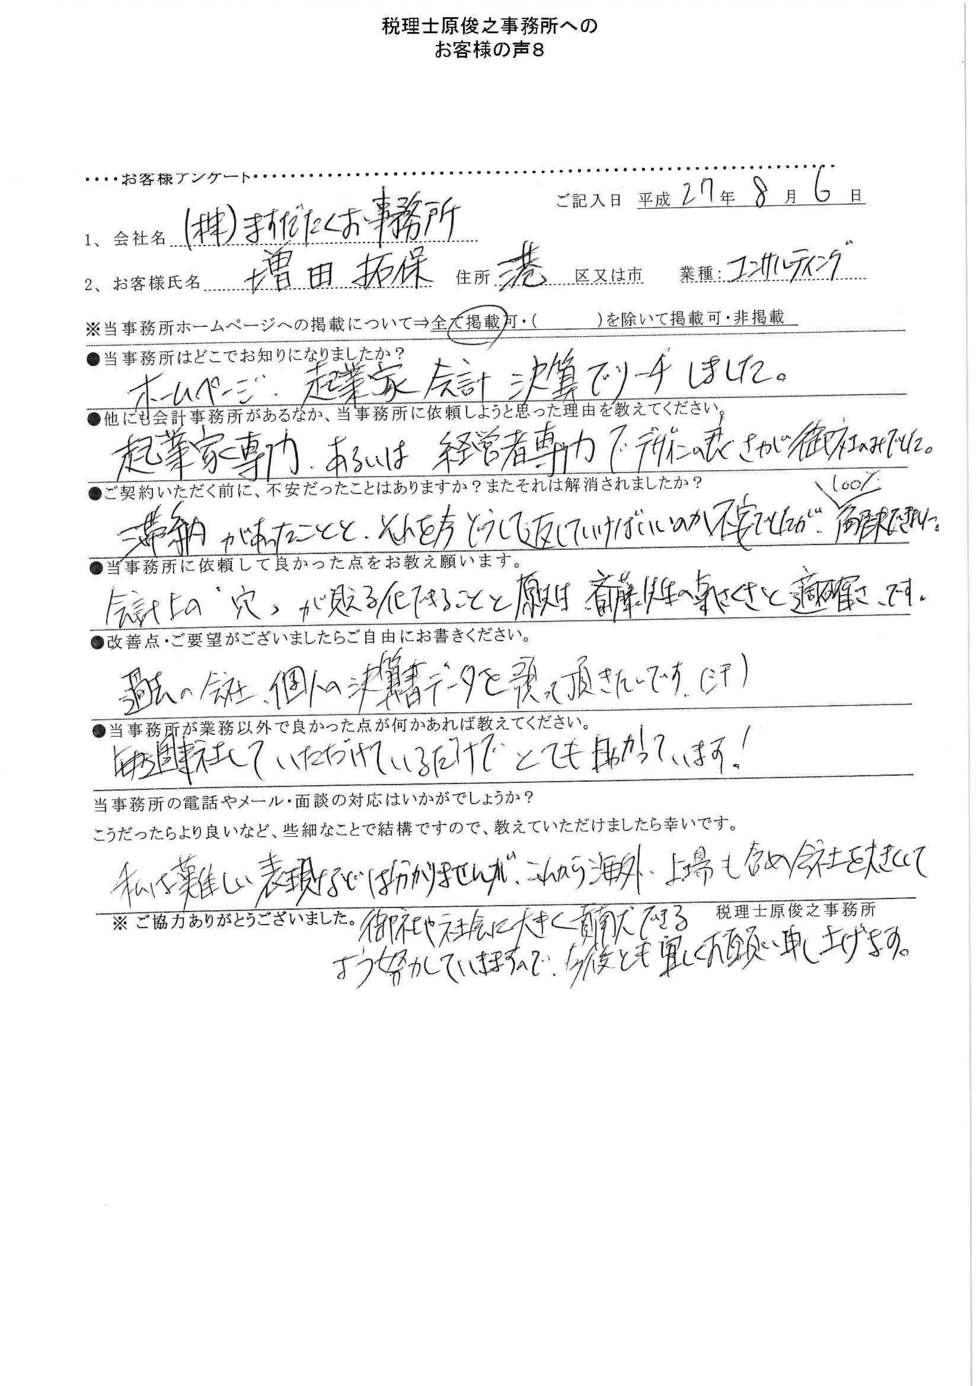 税理士原俊之事務所への
お客様の声8
････お客様アンケート････
ご記入日 平成 27年 8月 6日
1、会社名 (株)ますだたくお事務所
2、お客様氏名 増田拓保 住所 港 区又は市 業種: コンサルティング
※当事務所ホームページへの掲載について⇒全て掲載可・( )を除いて掲載可・非掲載
●当事務所はどこでお知りになりましたか?
ホームページ. 起業家 会計 決算でリーチしました。
●他にも会計事務所があるなか、当事務所に依頼しようと思った理由を教えてください。
起業家専門、あるいは 経営者専門で デザインの良さが御社のみでした。
●ご契約いただく前に、不安だったことはありますか?またそれは解消されましたか?
100%
滞納があったことと、それを今どうして返していけばいいのか不安でしたが、解決できました。
●当事務所に依頼して良かった点をお教え願います。
会計上の"穴"が見える化できることと 原先生 斎藤先生の気さくさと適確さ、です。
●改善点・ご要望がございましたらご自由にお書きください。
過去の会社、個人の決算書データを預って頂きたいです.(汗)
●当事務所が業務以外で良かった点が何かあれば教えてください。
毎週来社していただけているだけで とても助かっています!
当事務所の電話やメール・面談の対応はいかがでしょうか?
こうだったらより良いなど、些細なことで結構ですので、教えていただけましたら幸いです。
私は難しい表現などは分かりませんが、これから海外、上場も含め会社を大きくして
※ ご協力ありがとうございました。 税理士原俊之事務所
御社や社会に大きく貢献できる
よう努力していきますので、今後とも宜しくお願い申し上げます。